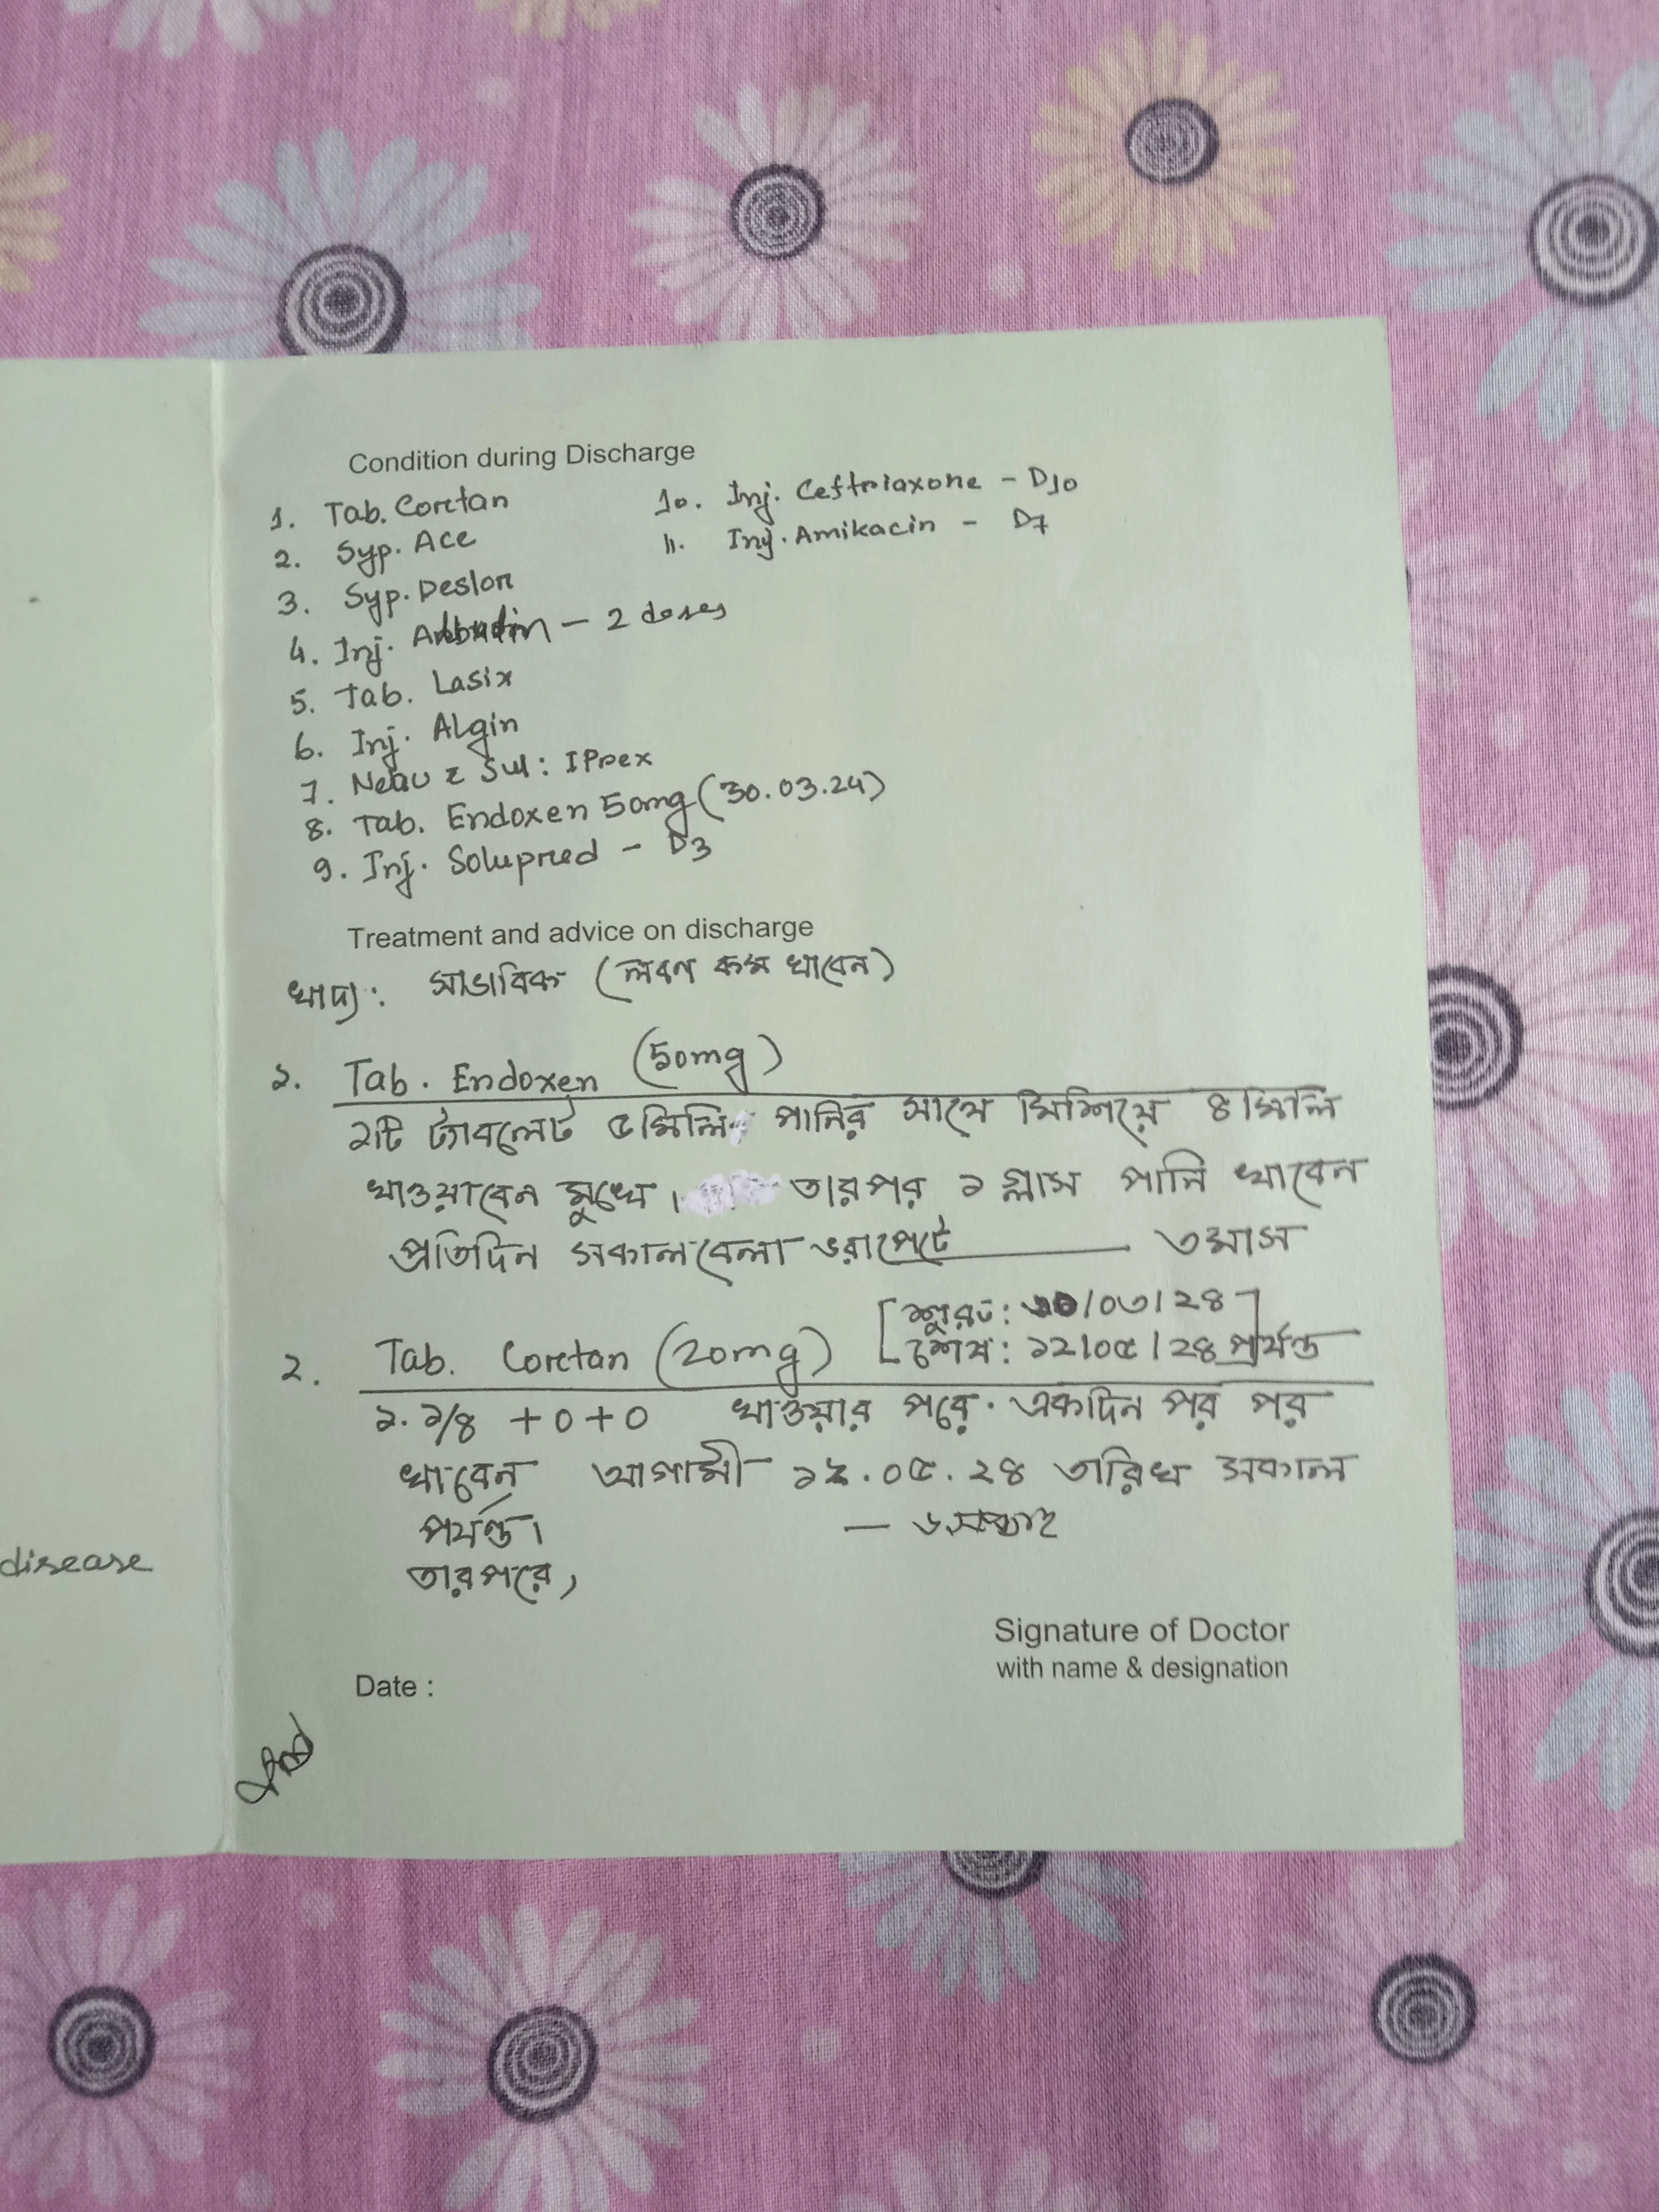 Condition during Discharge
1. Tab. Cortan
2. Syp. Ace
3. Syp. Deslor
4. Inj. - 2 doses
5. Tab. Lasix
6. Inj. Algin
7. Nebu c Sul: IPrex
8. Tab. Endoxen 50mg (30.03.24)
9. Inj. Solupred - D3
10. Inj. Ceftriaxone - D10
11. Inj. Amikacin - D7
Treatment and advice on discharge
খাদ্য: সাভাবিক (লবণ কম খাবেন)
১. Tab. Endoxen (50mg)
১টি ট্যাবলেট ৫মিলি পানির সাথে মিশিয়ে ৪ মিলি
খাওয়াবেন মুখে। তারপর ১ গ্লাস পানি খাবেন
প্রতিদিন সকালবেলা ভরাপেটে — ৩মাস
[শুরু: /০৩/২৪]
২. Tab. Cortan (20mg) [শেষ: ১২/০৫/২৪ পর্যন্ত
১.১/৪ + ০ + ০ খাওয়ার পরে. একদিন পর পর
খাবেন আগামী ১২.০৫.২৪ তারিখ সকাল
পর্যন্ত। — ৬সপ্তাহ
তারপরে,
Signature of Doctor
with name & designation
Date :
disease